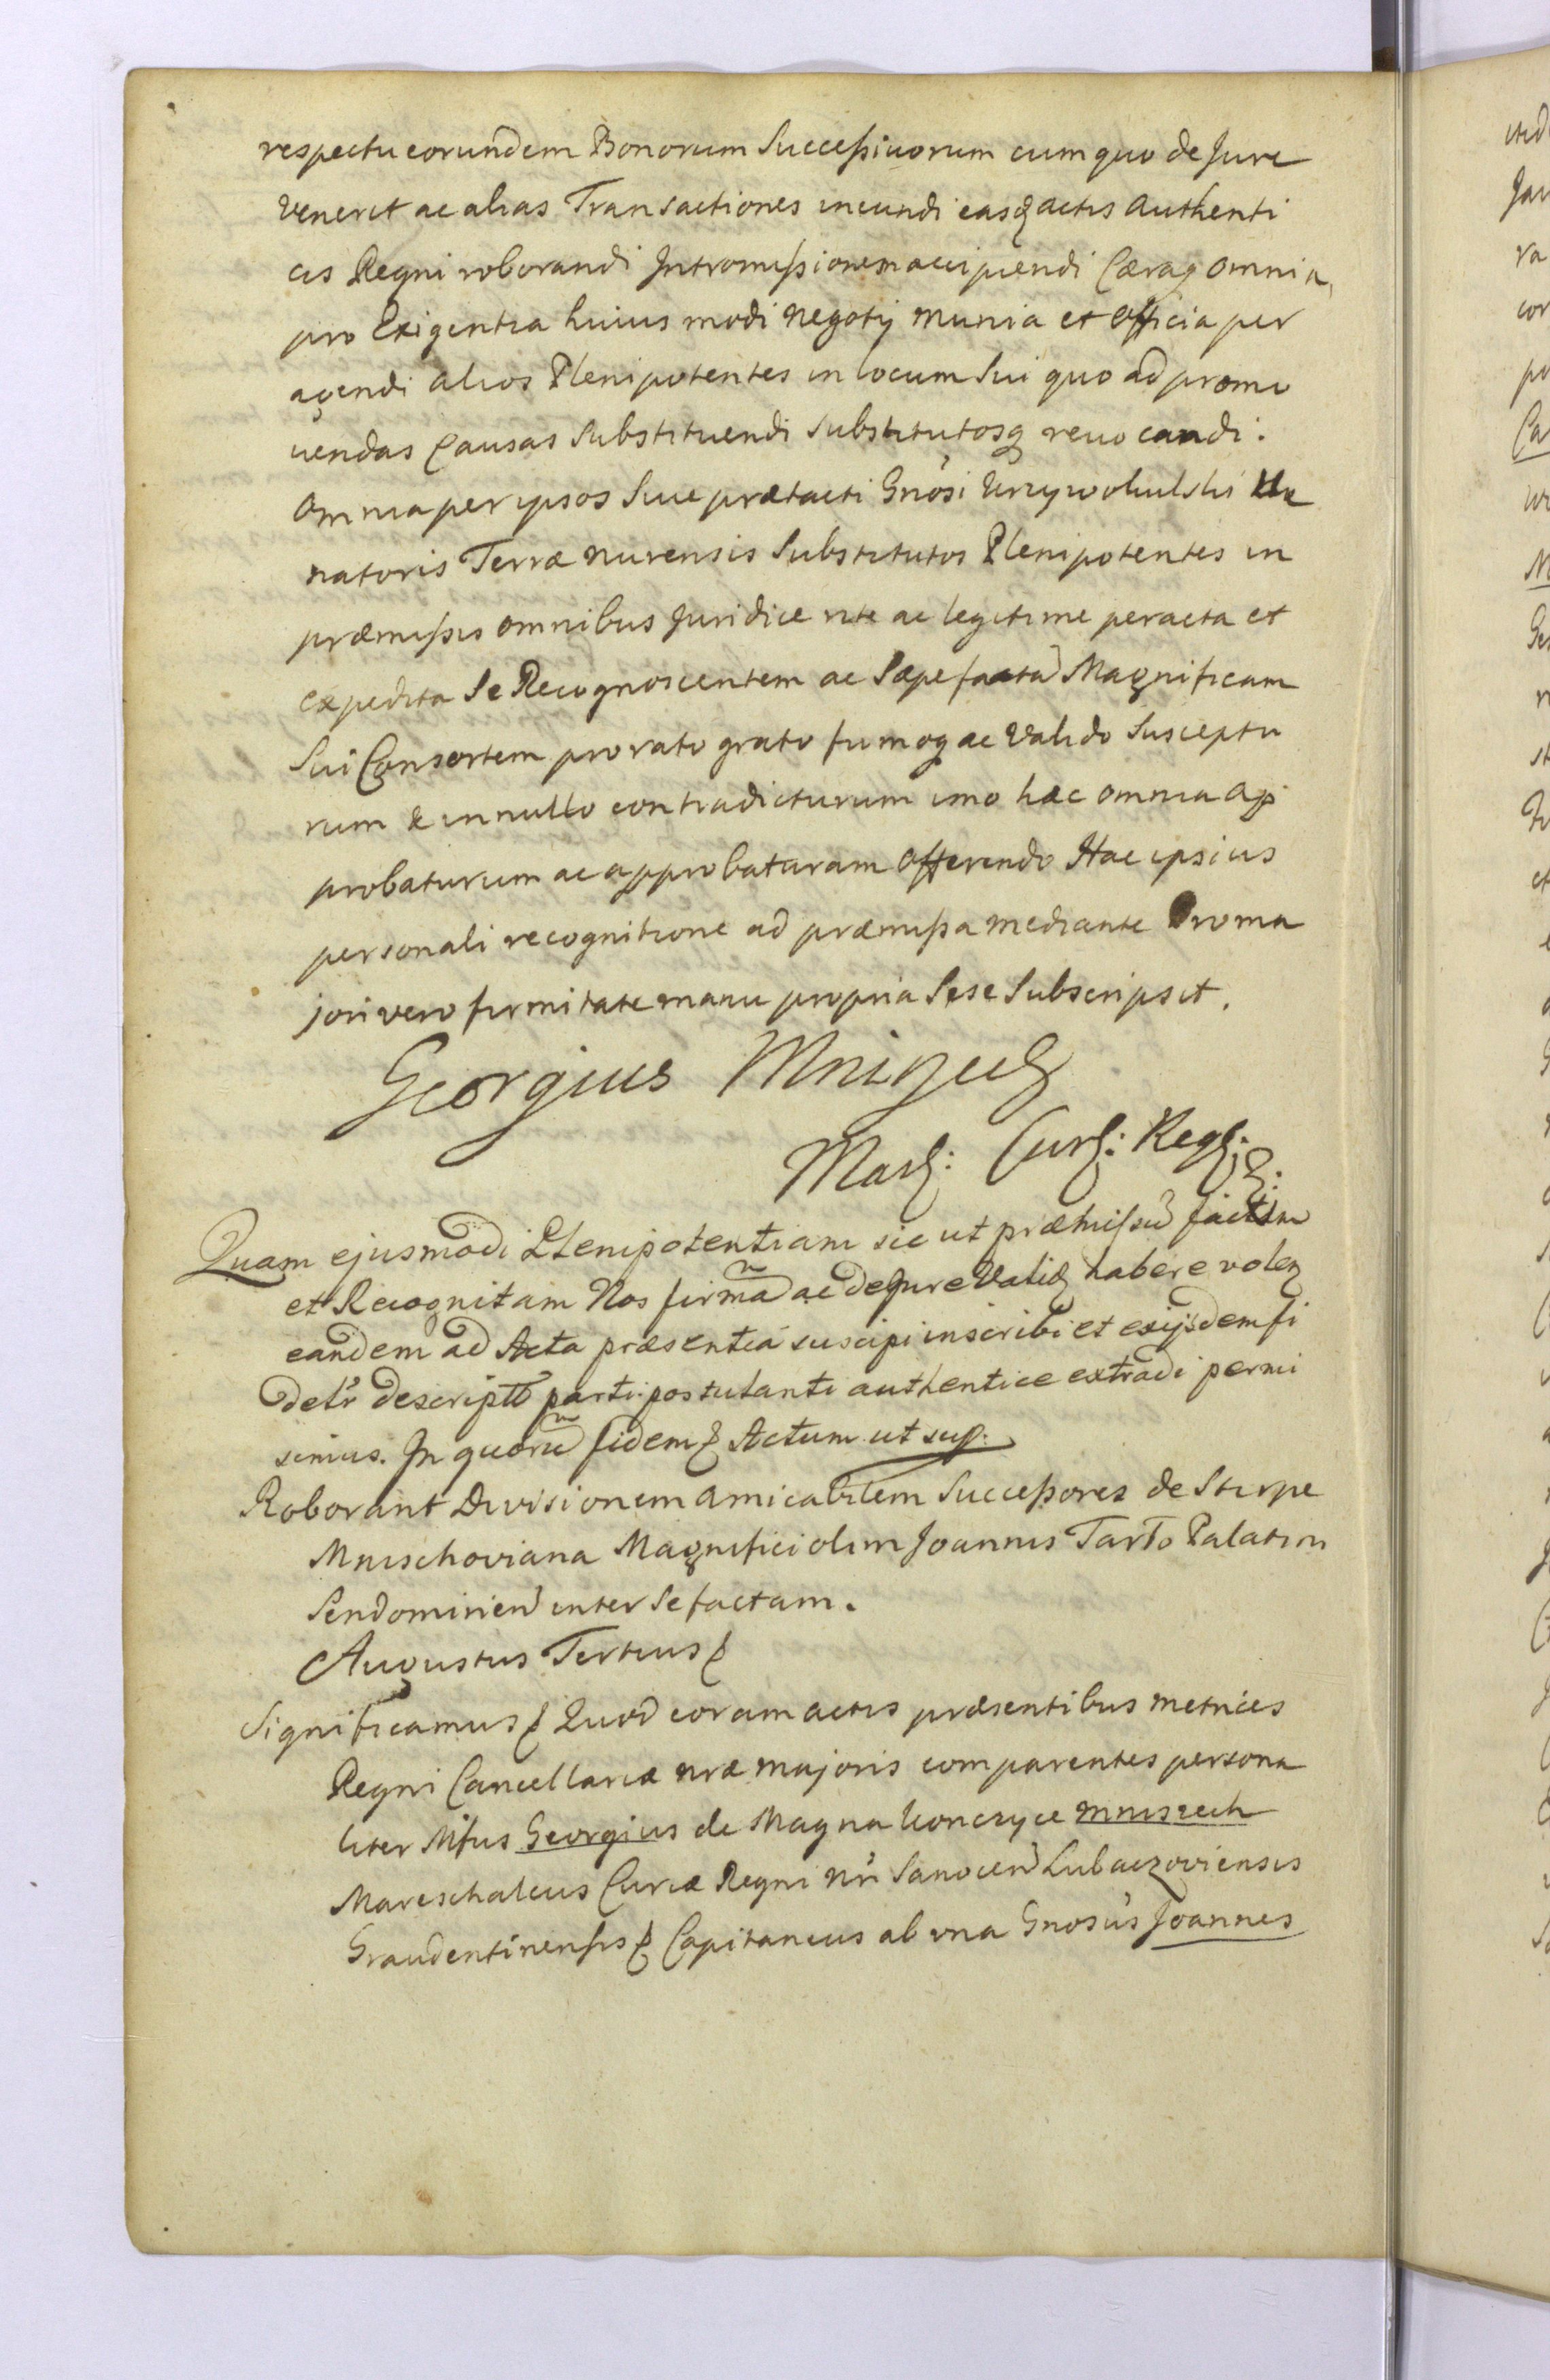 respectu eorundem Bonorum Successivorum cum quo de Jure
venerit ac alias Transactiones ineundi easq actis Authenti
cis Regni roborandi Intromissionem accipiendi Cæraq omnia
pro Exigentia huius modi negotij munia et officia per
agendi alios Plenipotentes in locum Sui quo ad promo
vendas Causas Substituendi Substitutosq revocandi.
Omnia per ipsos Sive prætacti Gnosi Krzywokulski
natoris Terræ nurensis Substitutos Plenipotentes in
præmissis omnibus Juridice rite ac legitime peracta et
expedita Se Recognoscentem ac Sæpefacta Magnificam
Sui Consortem pro rato grato firmoq ac Valido Susceptu
rum & in nullo contradicturum imo hæc omnia ap
probaturum ac approbaturam Offerendo Hac ipsius
personali recognitione ad præmissa mediante Pro ma
jori vero firmitate manu propria Sese Subscripsit.
Georgius Mniszech
Mar: Cur: Reg:
Quam ejusmodi Plenipotentiam sic ut præmissu factam
et Recognitam Nos firma ac de Jure Valid habere volen
eandem ad Acta præsentia suscipi inscribi et exijsdem fi
delr descriptt parti postulanti authentice extradi permi
simus. In quoru fidem Actum ut sup:
Roborant Divisionem amicabilem Successores de Stirpe
Mnischoviana Magnifici olim Joannis Tarło Palatini
Sendomirien inter Se factam.
Augustus Tertius
Significamus Quod coram actis præsentibus metrices
Regni Cancellariæ nræ majoris comparentes persona
liter Mfus Georgius de Magna Konczyce Mniszech
Mareschalcus Curiæ Regni nri Sanocen Lubaczoviensis
Graudentinensis Capitaneus ab una Gnosus Joannes